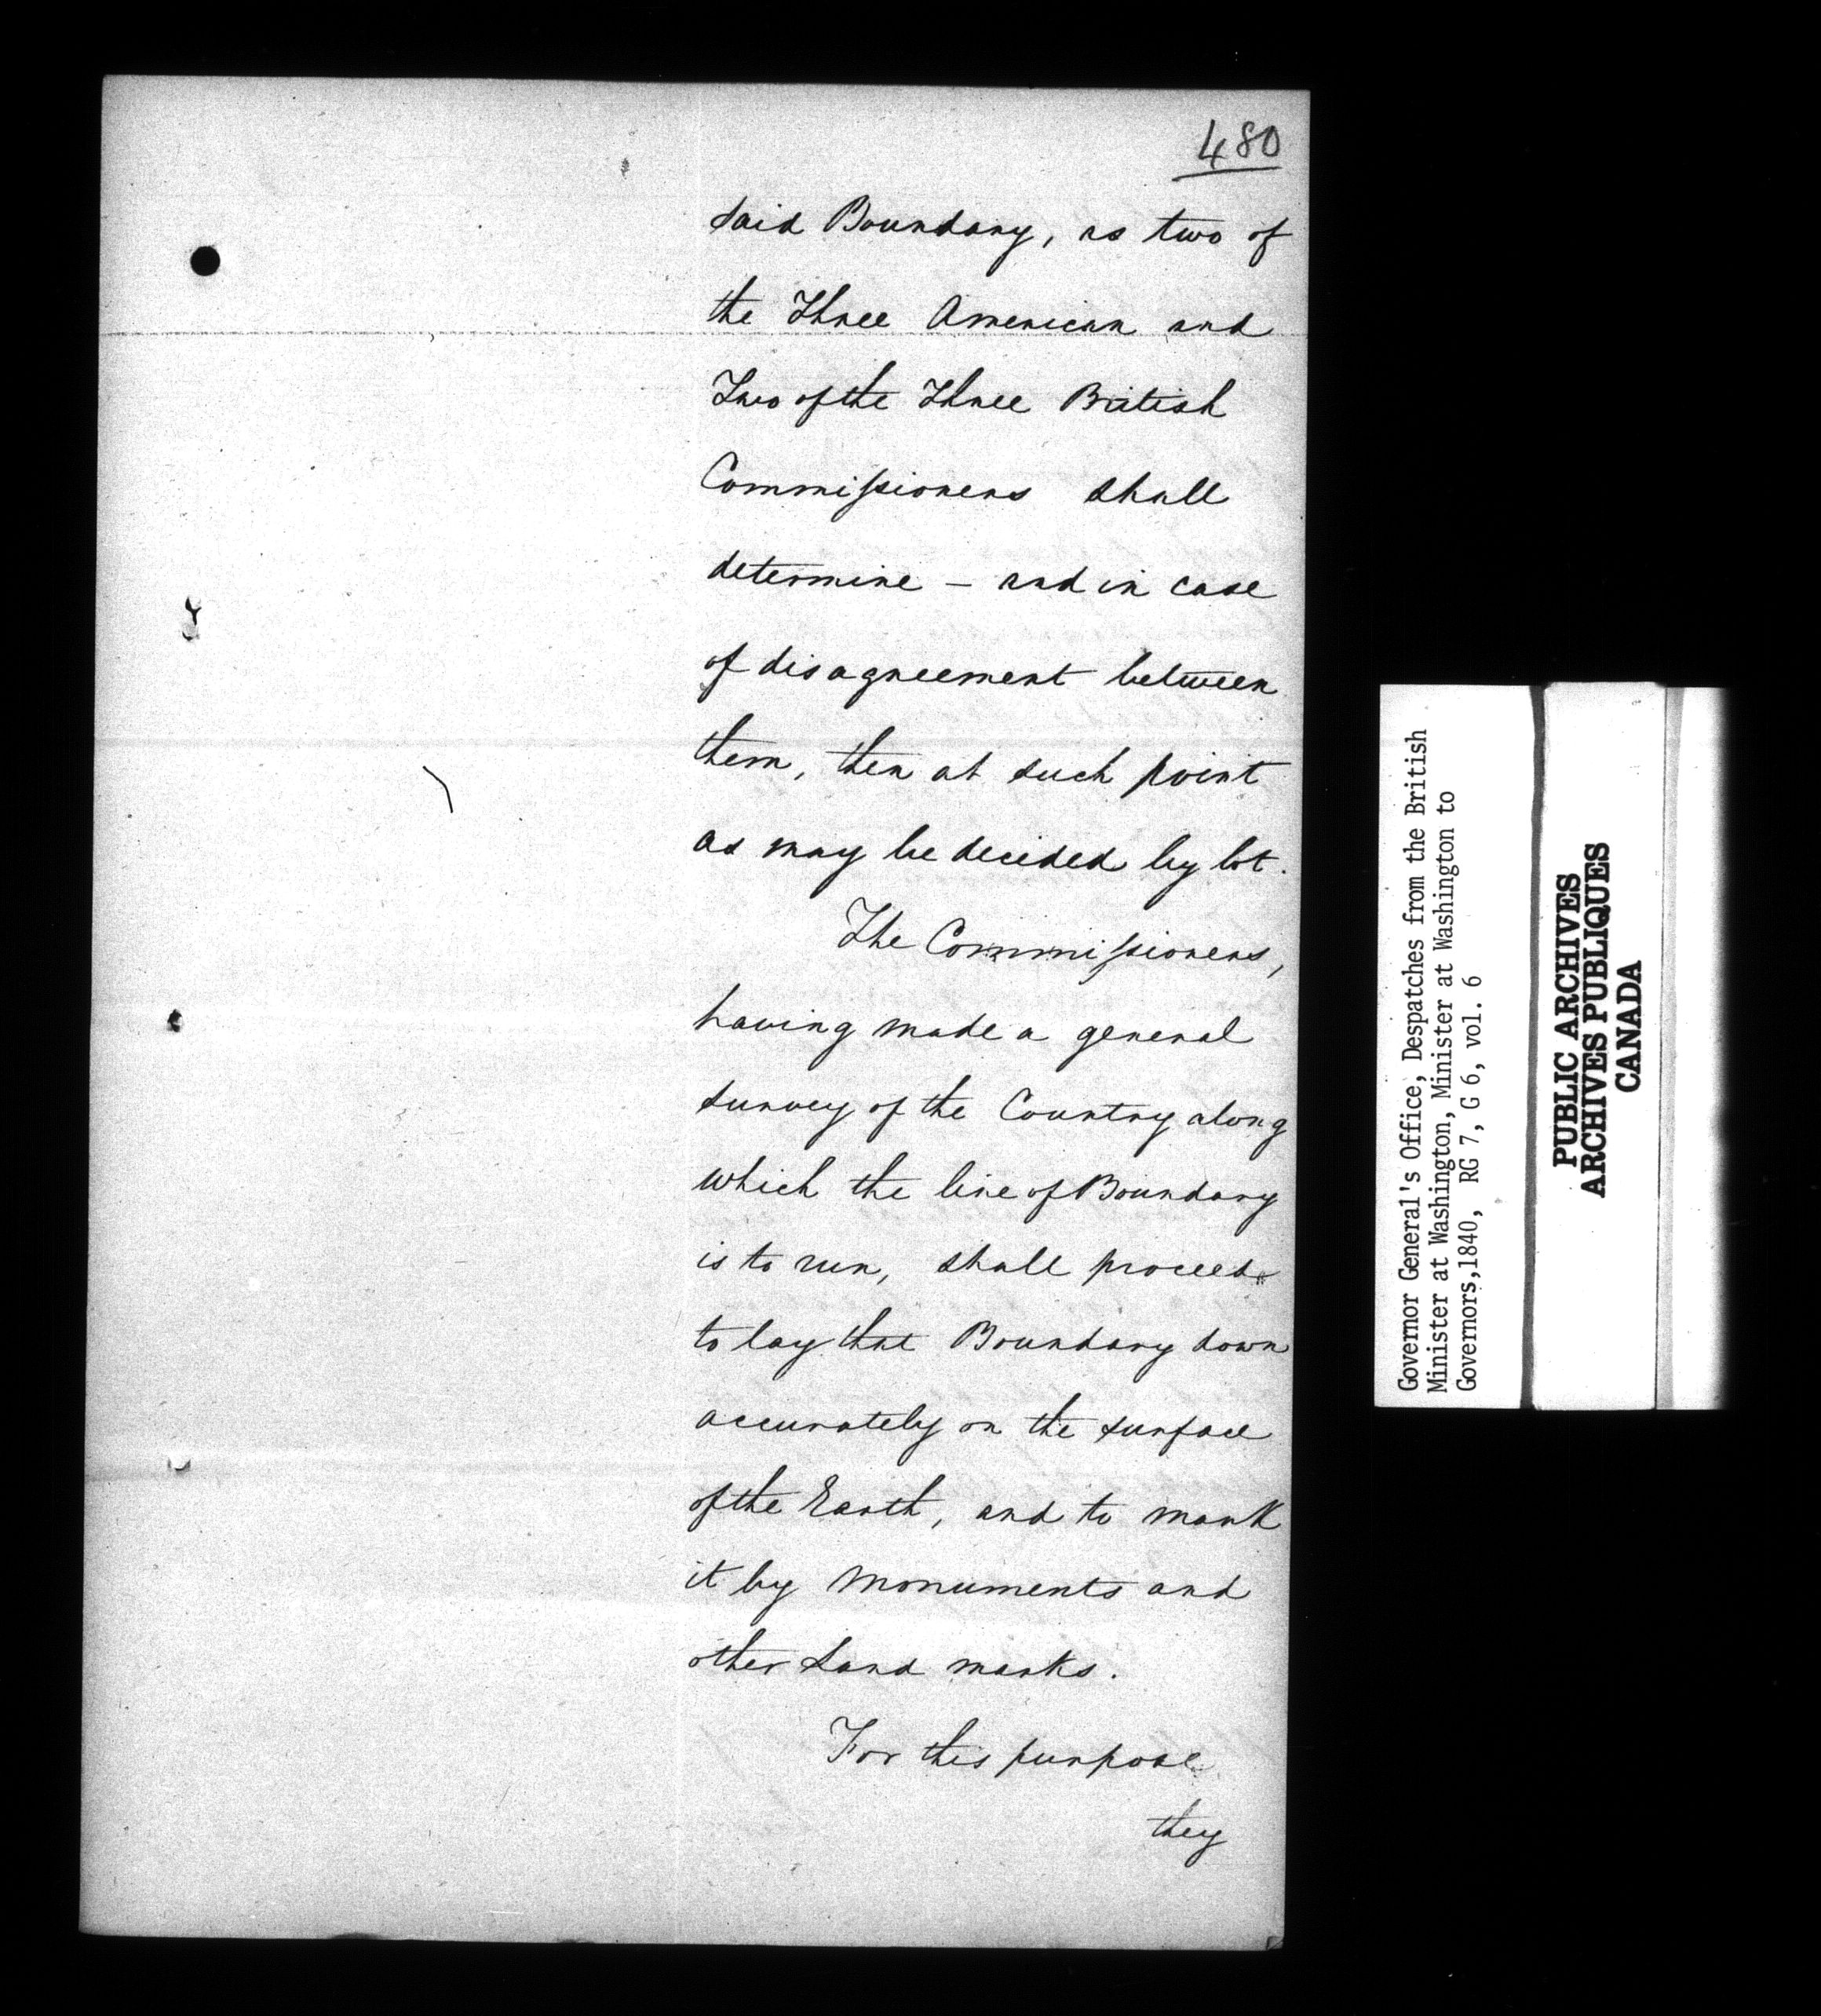 480
said Boundary, as two of
the Three American and
Two of the Three British
Commissioners shall
determine – and in case
of disagreement between
them, then at such point
as may be decided by lot.
The Commissioners,
having made a general
survey of the Country along
which the line of Boundary
is to run, shall proceed
to lay that Boundary down
accurately on the surface
of the Earth, and to mark
it by Monuments and
other Land marks.
For this purpose
they
Governor General's Office, Despatches from the British
Minister at Washington, Minister at Washington to
Governors,1840, RG 7, G 6, vol. 6
PUBLIC ARCHIVES
ARCHIVES PUBLIQUES
CANADA